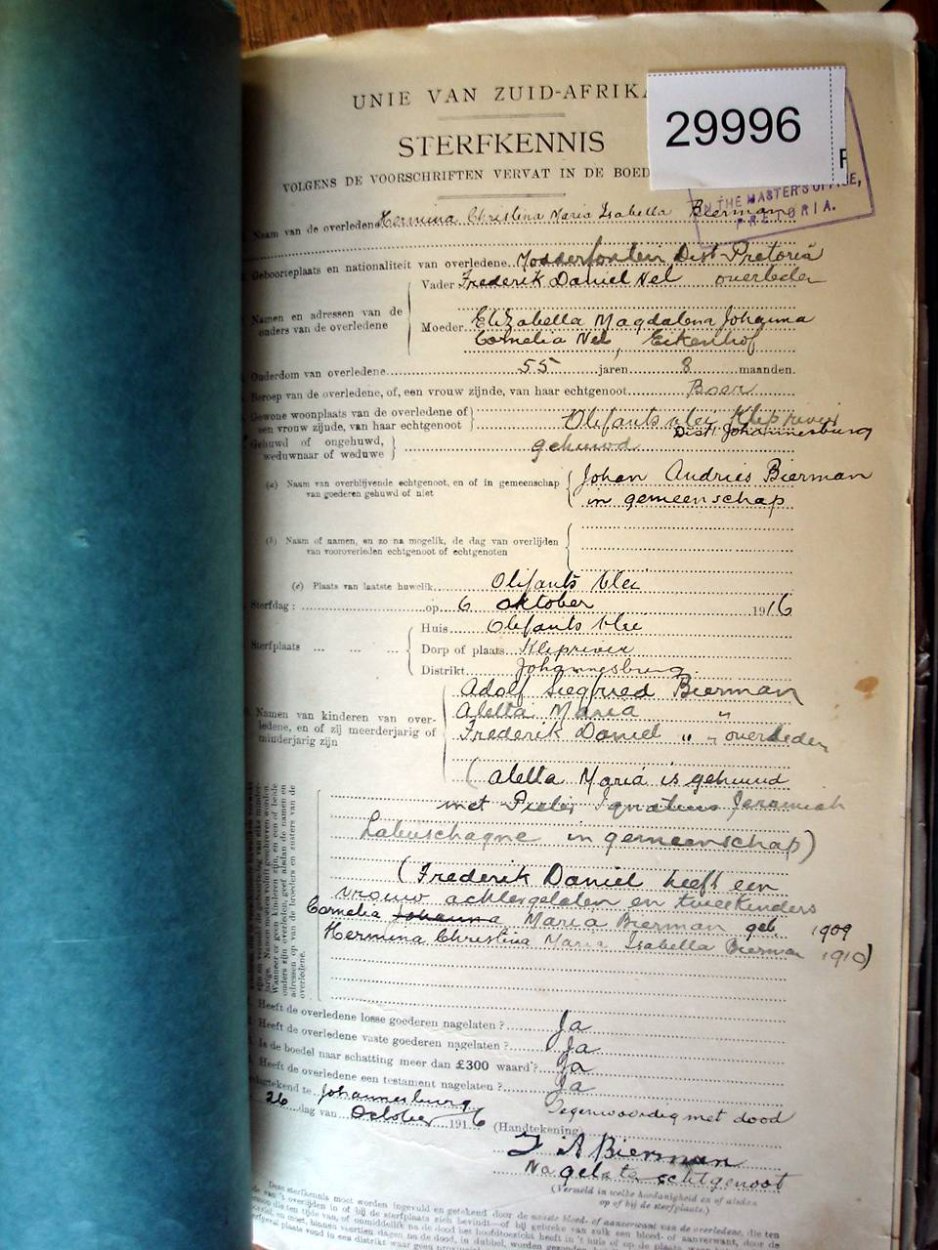 UNIE VAN ZUID-AFRIKA
29996
STERFKENNIS
VOLGENS DE VOORSCHRIFTEN VERVAT IN DE BOED
IN THE MASTER'S OFFICE,
PRETORIA.
Naam van de overledene Hermina Christina Maria Isabella Bierman
Geboorteplaats en nationaliteit van overledene Modderfontein Dist Pretoria
Namen en adressen van de ouders van de overledene
Vader Frederik Daniel Nel overleden
Moeder Elizabella Magdalena Johanna
Cornelia Nel, Eikenhof
Ouderdom van overledene 55 jaren 8 maanden.
Beroep van de overledene, of, een vrouw zijnde, van haar echtgenoot Boer
Gewone woonplaats van de overledene of
een vrouw zijnde, van haar echtgenoot Olifants vlei Kliprivier
Dist. Johannesburg
Gehuwd of ongehuwd,
weduwnaar of weduwe gehuwd
(a) Naam van overblijvende echtgenoot, en of in gemeenschap Johan Andries Bierman
van goederen gehuwd of niet in gemeenschap
(b) Naam of namen, en zo na mogelijk, de dag van overlijden
van vooroverleden echtgenoot of echtgenoten
(c) Plaats van laatste huwelik Olifants vlei
Sterfdag: op 6 oktober 1916
Sterfplaats
Huis Olifants vlei
Dorp of plaats Kliprivier
Distrikt Johannesburg
Namen van kinderen van over-
ledene, en of zij meerderjarig of
minderjarig zijn
Adolf Siegfried Bierman
Aletta Maria "
Frederik Daniel " " overleden
(Aletta Maria is gehuwd
met Pieter Ignatius Jeremiah
Labuschagne in gemeenschap)
(Frederik Daniel heeft een
vrouw achtergelaten en twee kinders
Cornelia Johanna Maria Bierman geb. 1909
Hermina Christina Maria Isabella Bierman 1910)
Wanneer er geen kinderen zijn, en een of beide
ouders zijn overleden, geef alsdan de namen en
adressen op van de broeders en zusters van de
overledene.
Heeft de overledene losse goederen nagelaten? Ja
Heeft de overledene vaste goederen nagelaten? Ja
Is de boedel naar schatting meer dan £300 waard? Ja
Heeft de overledene een testament nagelaten? Ja
te Johannesburg
26 dag van October 1916
Tegenwoordig met dood
(Handtekening)
J A Bierman
Nagelate echtgenoot
(Vermeld in welke hoedanigheid en of aldaar
op of bij de sterfplaats.)
Deze sterfkennis moet worden ingevuld en getekend door de naaste bloed- of aanverwant van de overledene, die ten